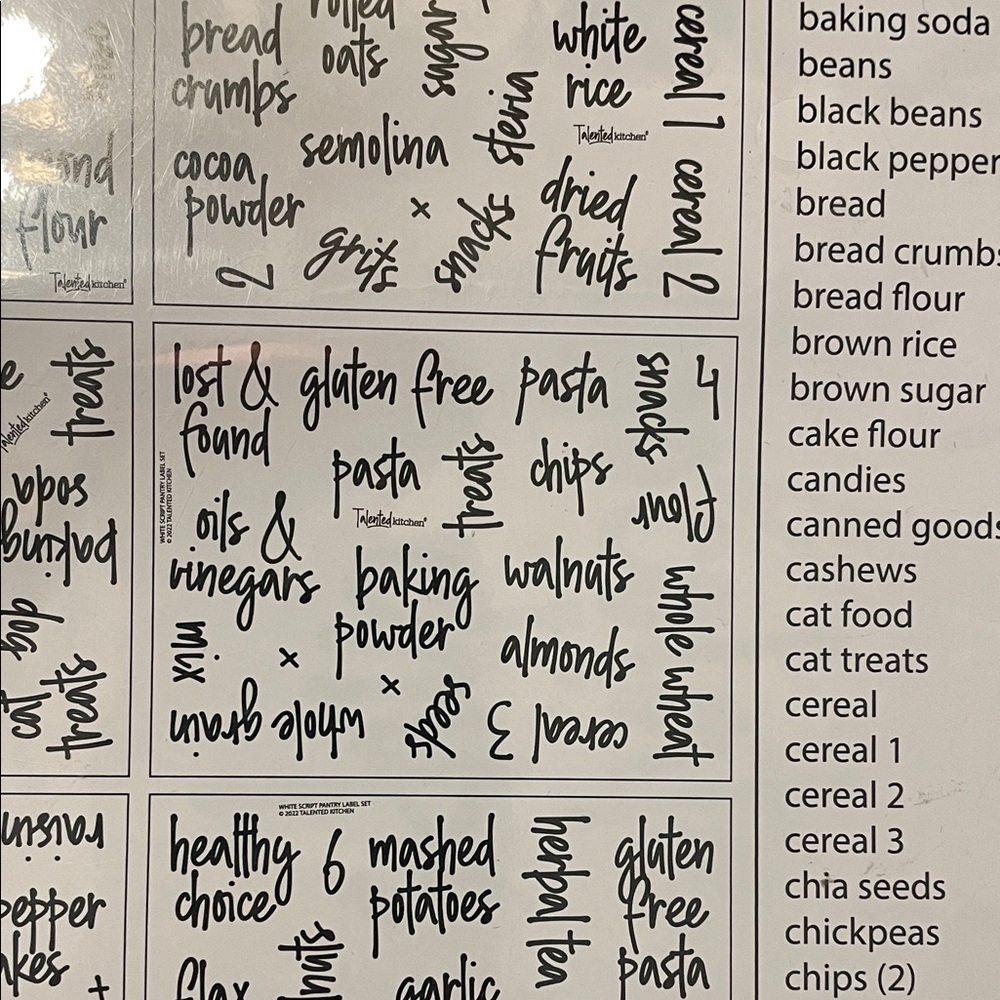 flour
Talented kitchen®
treats
Talented kitchen®
soda
baking
dog
cat
treats
raisin
pepper
bread
crumbs
rolled
oats
sugar
stevia
white
rice
Talented kitchen®
cereal 1
cocoa
powder
semolina
x
grits
snacks
dried
fruits
cereal 2
2
lost &
found
gluten free
pasta
snacks
4
pasta
treats
chips
flour
WHITE SCRIPT PANTRY LABEL SET
© 2022 TALENTED KITCHEN
Talented kitchen®
oils &
vinegars
baking
powder
walnuts
whole wheat
mix
x
x
almonds
whole grain
seeds
cereal 3
WHITE SCRIPT PANTRY LABEL SET
© 2022 TALENTED KITCHEN
healthy
choice
6
mashed
potatoes
herbal tea
gluten
free
pasta
flax
garlic
baking soda
beans
black beans
black pepper
bread
bread crumbs
bread flour
brown rice
brown sugar
cake flour
candies
canned goods
cashews
cat food
cat treats
cereal
cereal 1
cereal 2
cereal 3
chia seeds
chickpeas
chips (2)